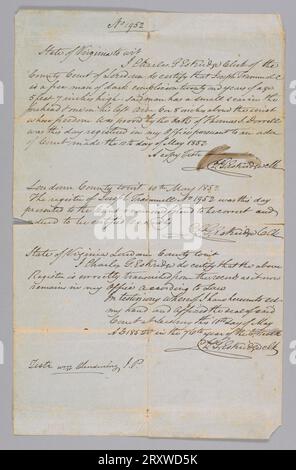 No 1952
State of Virginia to wit
I Charles G Eskridge Clerk of the
County Court of Loudoun do certify that Joseph Trammell
is a free man of dark complexion twenty one years of age
5 feet 7 inches high and has a small scar in the
forehead
whose freedom was proved by the oath of Thomas
was this day registered in my Office pursuant to an order
of Court made the 10th day of May 1852
A copy Teste
C. G. Eskridge Clk
Loudoun County to wit 10th May 1852
The register of Joseph Trammell No 1952 was this day
presented to the Court and to be correct and
ordered to be
C. G. Eskridge Clk
State of Virginia Loudoun County to wit
I Charles G Eskridge do certify that the above
Register is correctly transcribed from the record as it now
remains in my Office according to law
In testimony whereof I have hereunto set
my hand and affixed the seal of said
Court at Leesburg this 10th day of May
AD 1852 in the 76th year of the
C. G. Eskridge Clk
Teste J. P.
alamy
Image ID: 2RXWD5K
www.alamy.com